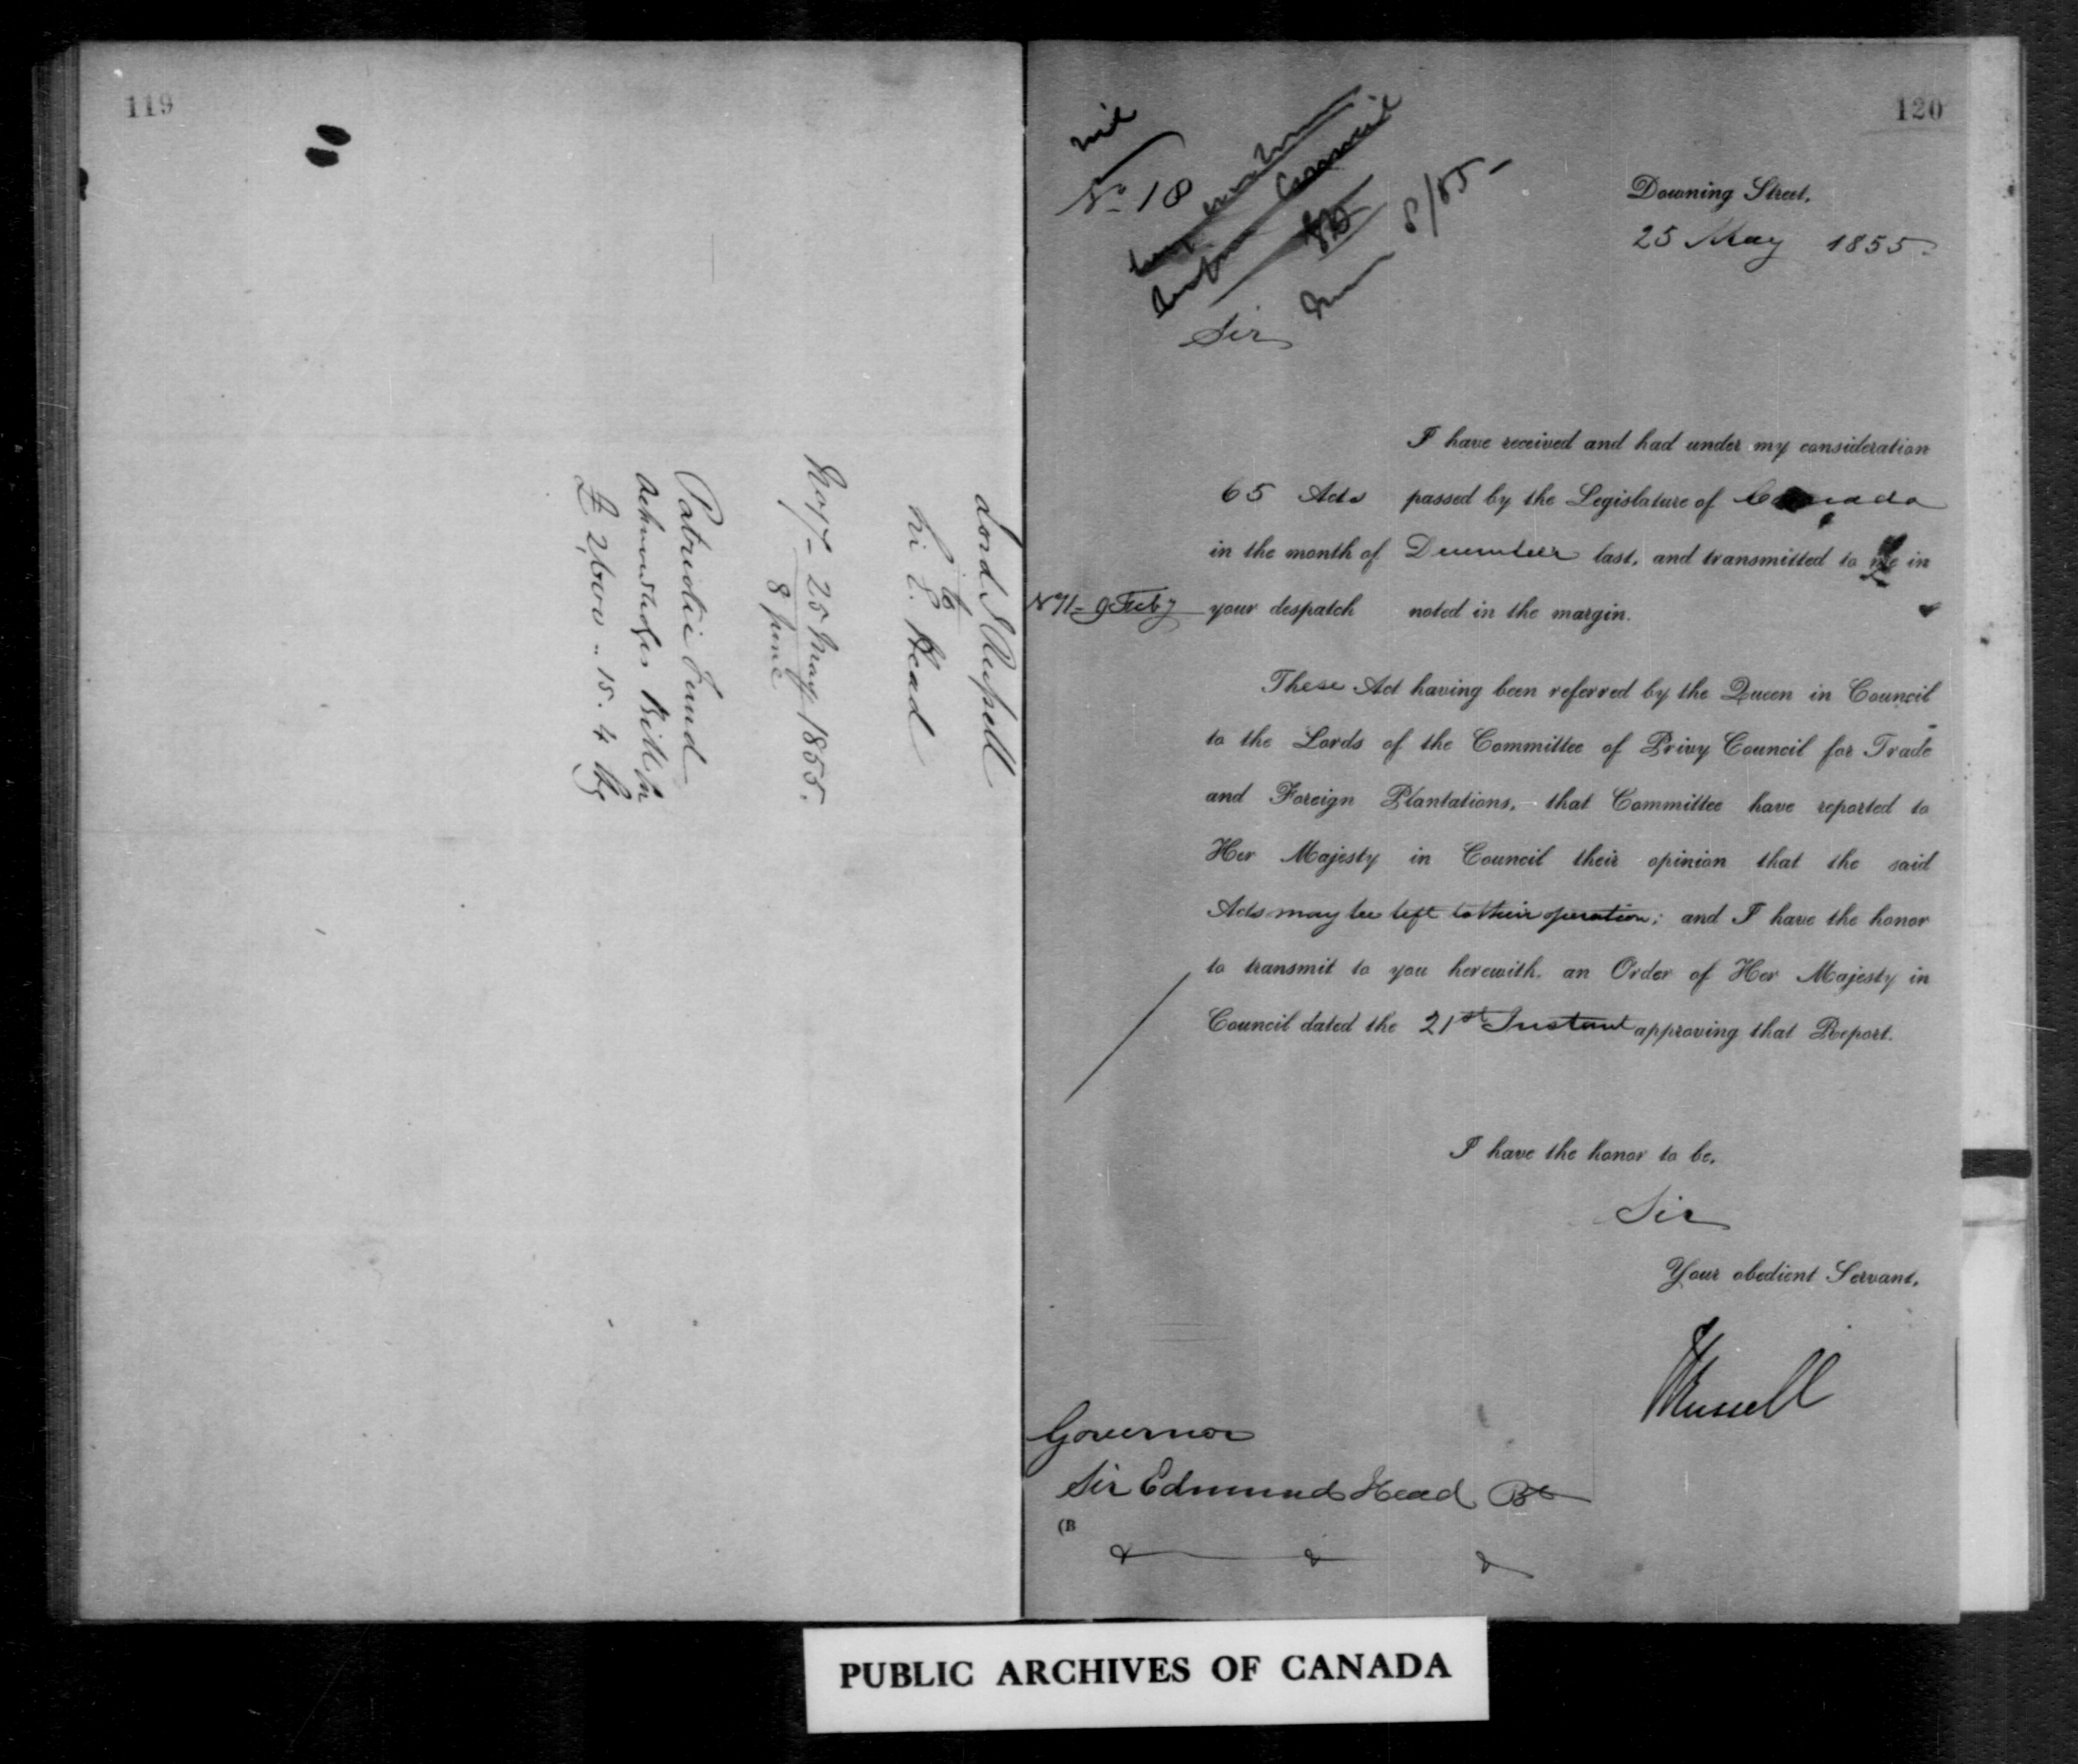 119
Lord J Russell
to
Sir E. Head
25 May 1855.
8 June
Patriotic Fund
Acknowledges Bill for
£ 2600 .. 15. 4 Stg
120
Nº 18
Downing Street,
25 May 1855
Sir
I have received and had under my consideration
65 Acts passed by the Legislature of Canada
in the month of December last, and transmitted to me in
your despatch noted in the margin.
These Act having been referred by the Queen in Council
to the Lords of the Committee of Privy Council for Trade
and Foreign Plantations, that Committee have reported to
Her Majesty in Council their opinion that the said
Acts may be left to their operation; and I have the honor
to transmit to you herewith, an Order of Her Majesty in
Council dated the 21st Instant approving that Report.
I have the honor to be,
Sir
Your obedient Servant,
J Russell
Governor
Sir Edmund Head Bt
(B
PUBLIC ARCHIVES OF CANADA